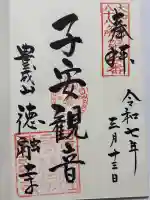 奉拝
令和七年
三月十三日
子安観音
豊成山
徳融寺